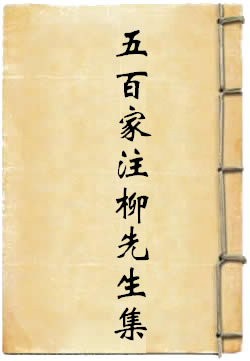 五百家注柳先生集